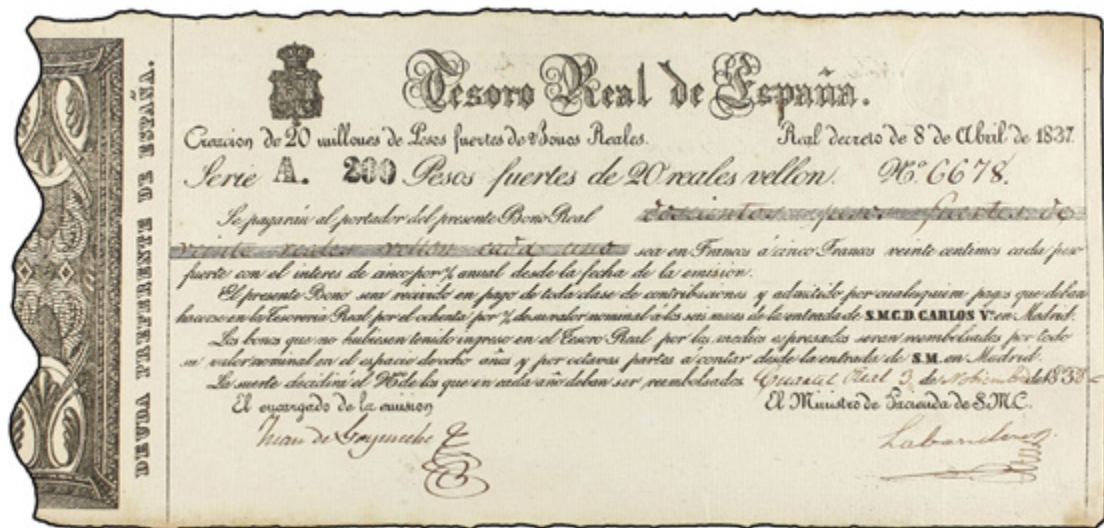 DEUDA PREFERENTE DE ESPAÑA.
Tesoro Real de España.
Creacion de 20 millones de Pesos fuertes de Bonos Reales. Real decreto de 8 de Abril de 1837.
Serie A. 200 Pesos fuertes de 20 reales vellon. Nº 6678.
Se pagarán al portador del presente Bono Real doscientos pesos fuertes de
veinte reales vellon cada uno sea en Francos a cinco Francos veinte centimos cada peso
fuerte con el interes de cinco por % anual desde la fecha de la emision.
El presente Bono sera recivido en pago de toda clase de contribuciones y admitido por cualesquiera pagos que deban
hacerse en la Tesoreria Real por el ochenta por % de su valor nominal a los seis meses de la entrada de S.M.C.D. CARLOS Vº en Madrid.
Los bonos que no hubiesen tenido ingreso en el Tesoro Real por los medios espresados seran reembolsados por todo
su valor nominal en el espacio de ocho años y por octavas partes a contar desde la entrada de S.M. en Madrid.
La suerte decidirá el Nº de los que en cada año deban ser reembolsados Cuartel Real 3 de Nobiembre de 1838
El encargado de la emision El Ministro de Hacienda de S.M.C.
Juan de Goyeneche Labandero